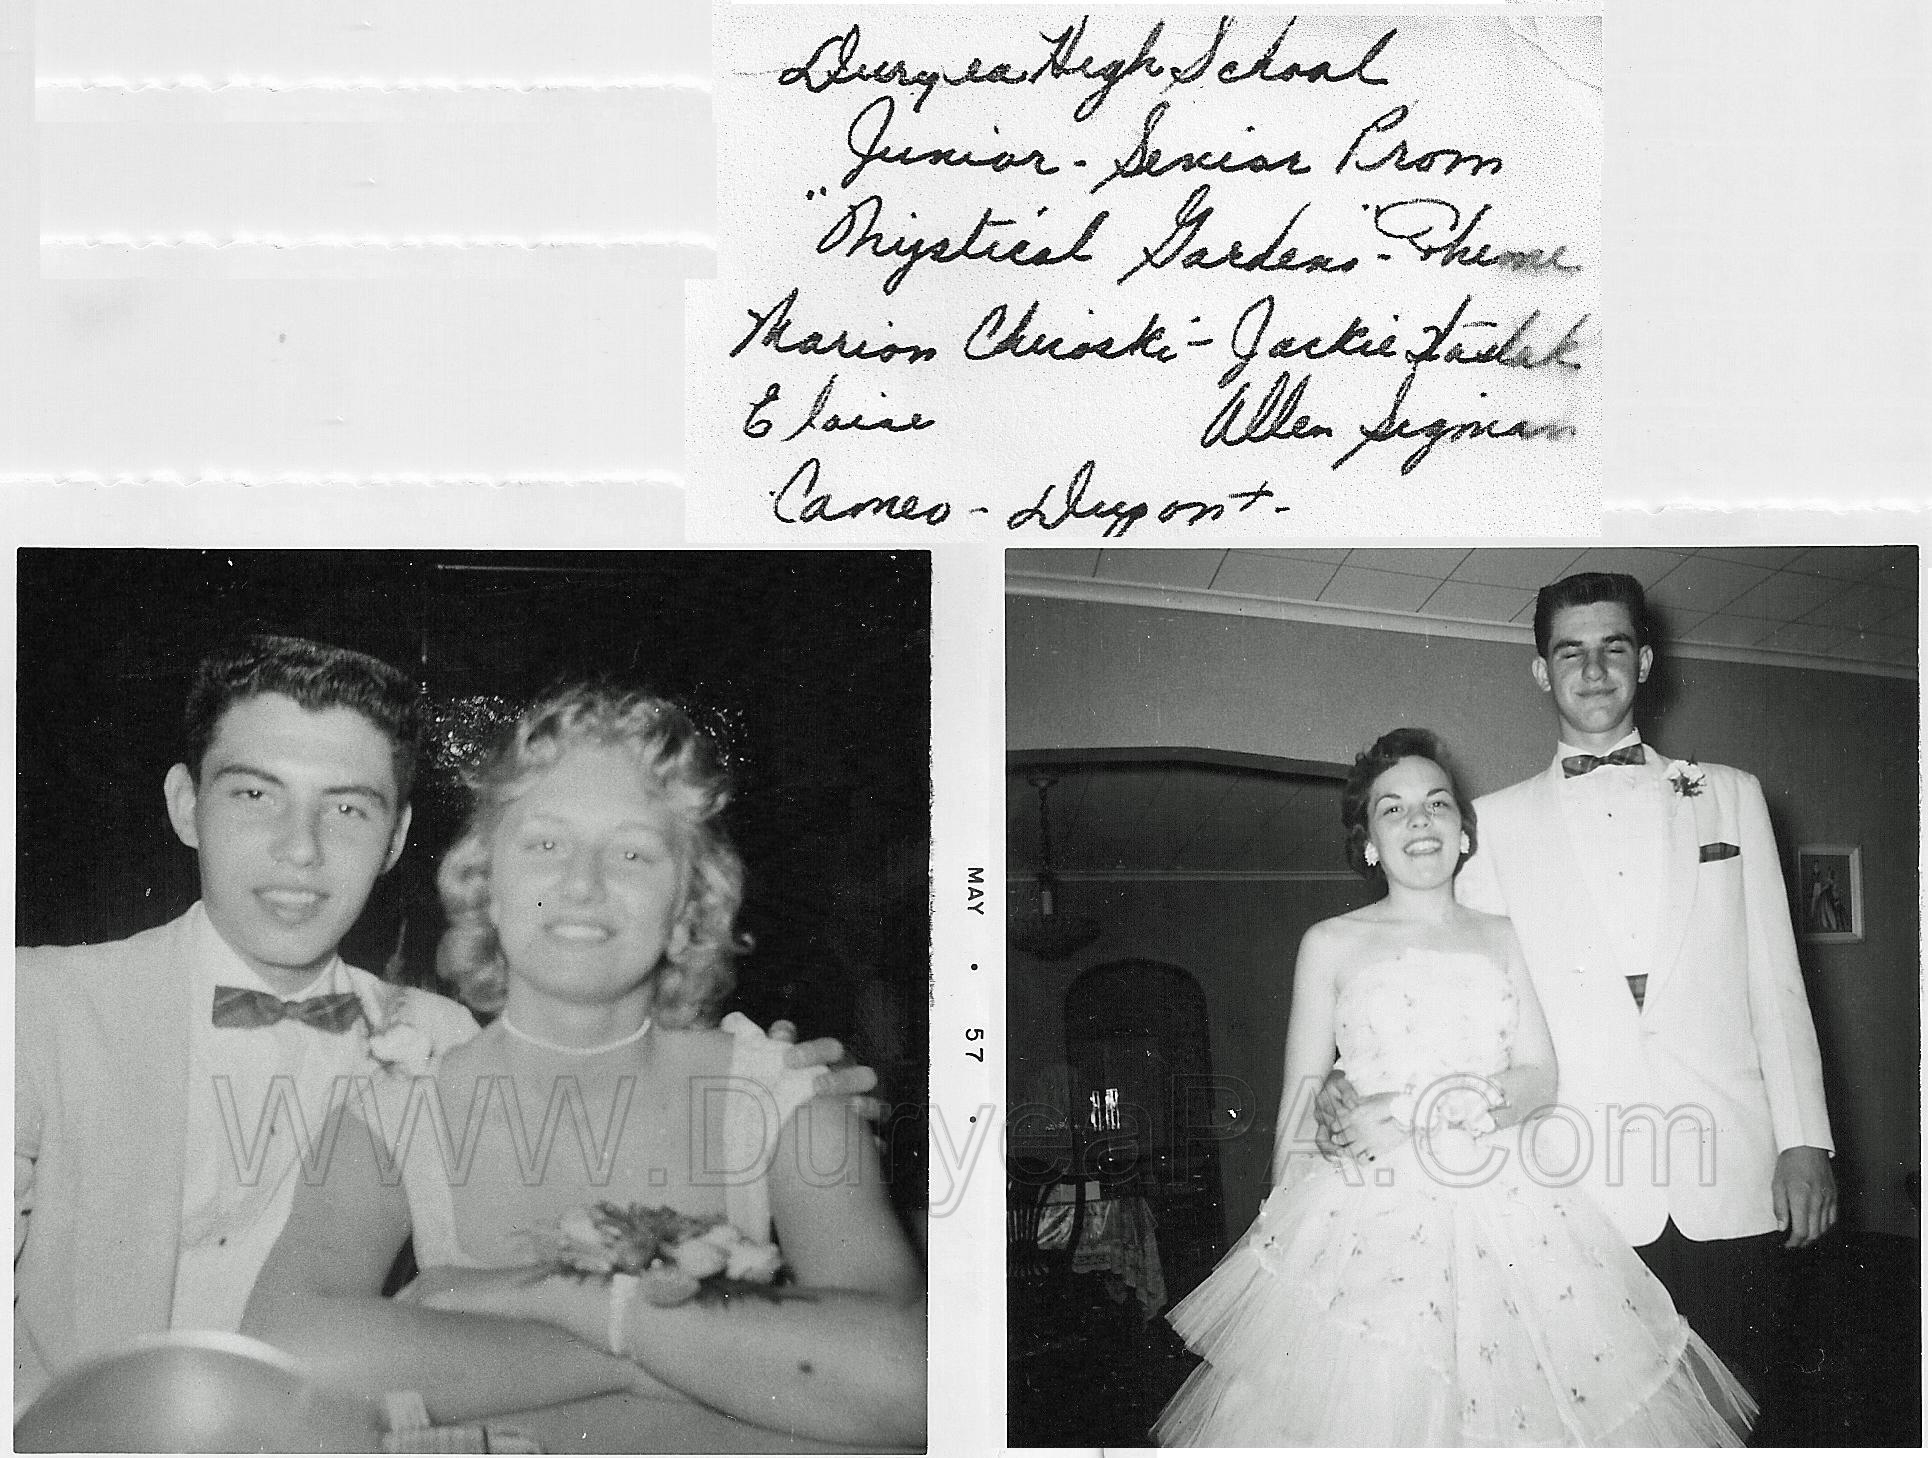 Duryea High School
Junior - Senior Prom
"Mystical Gardens" - Theme
Marion Chicoski - Jackie
Eloise Allen Sigman
Cameo - Dupont -
MAY • 57 •
WWW.DuryeaPA.Com